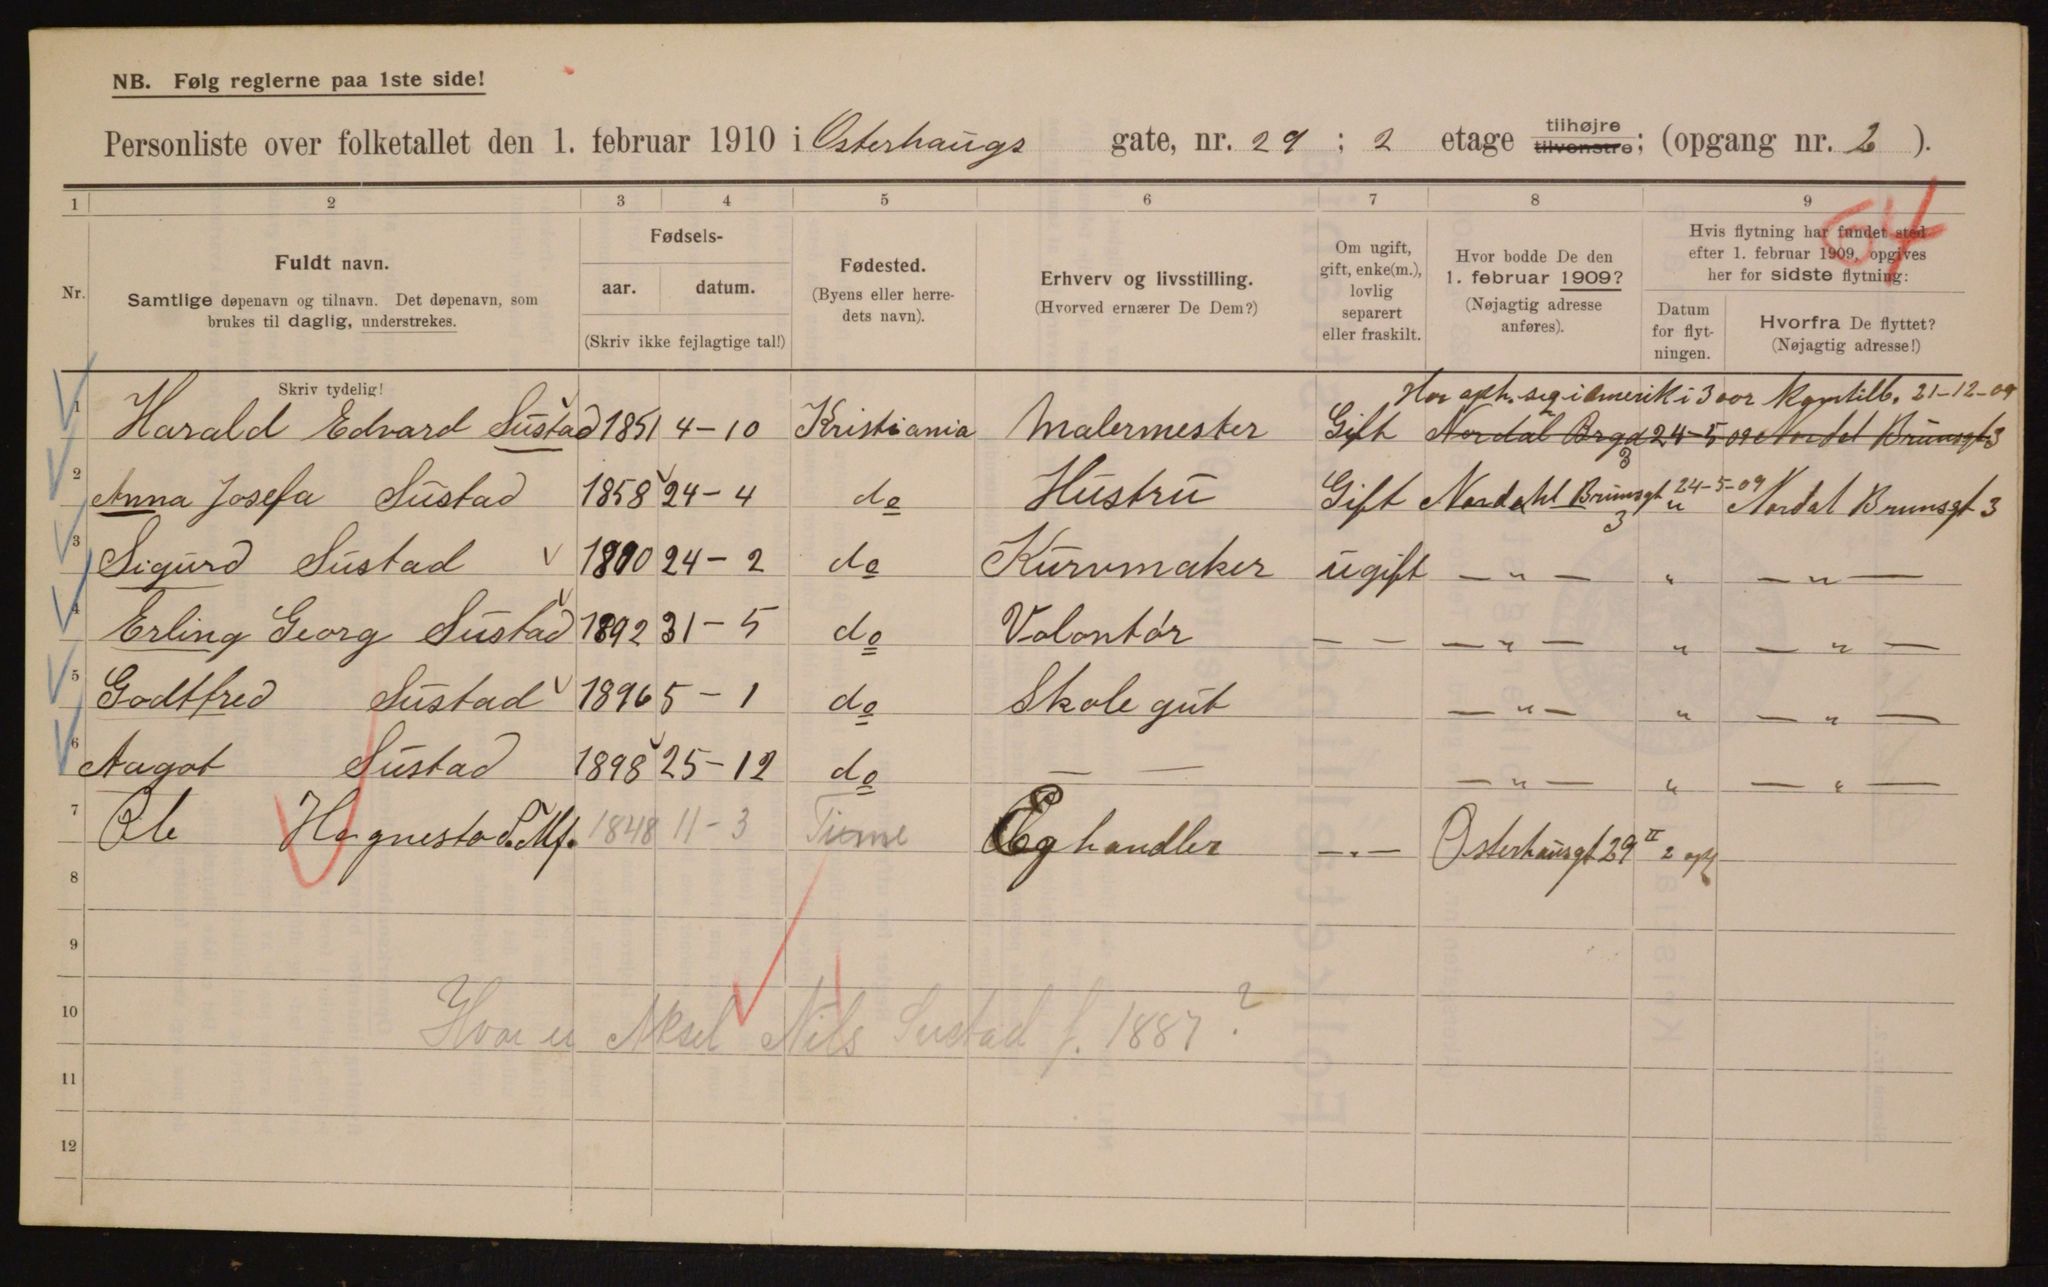 NB. Følg reglerne paa 1ste side!
Personliste over folketallet den 1. februar 1910 i Osterhaugs gate, nr. 29 ; 2 etage tilhøjre tilvenstre; (opgang nr. 2 ).
1 2 3 4 5 6 7 8 9
Nr.
Fuldt navn.
Samtlige døpenavn og tilnavn. Det døpenavn, som
brukes til daglig, understrekes.
Skriv tydelig!
Fødsels-
aar. datum.
(Skriv ikke fejlagtige tal!)
Fødested.
(Byens eller herre-
dets navn).
Erhverv og livsstilling.
(Hvorved ernærer De Dem?)
Om ugift,
gift, enke(m.),
lovlig
separert
eller fraskilt.
Hvor bodde De den
1. februar 1909?
(Nøjagtig adresse
anføres).
Hvis flytning har fundet sted
efter 1. februar 1909, opgives
her for sidste flytning:
Datum
for flyt-
ningen.
Hvorfra De flyttet?
(Nøjagtig adresse!)
i 3 aar 21-12-09
1 Harald Edvard Sustad 1851 4-10 Kristiania Malermester Gift Nordal Brgd 3 24-5 09 Nordal Brunsgt 3
2 Anna Josefa Sustad 1858 24-4 do Hustru Gift Nordahl Brunsgt 3 24-5-09 Nordal Brunsgt 3
3 Sigurd Sustad 1890 24-2 do Kurvmaker ugift — " — " — " —
4 Erling Georg Sustad 1892 31-5 do Volontør — — — " — " — " —
5 Godtfred Sustad 1896 5-1 do Skolegut — " — " — " —
6 Aagot Sustad 1898 25-12 do — — — " — " — " —
7 Ole Hognestad 1848 11-3 Time Æghandler — " — Osterhausgt 29 II 2 opg
8
9
10 Hvor er Aksel Nils Sustad f. 1887?
11
12